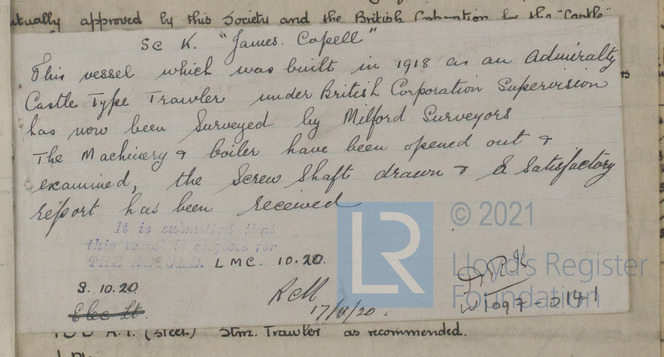 mutually approved by this Society and the British Corporation for the "Castle"
Sc K. "James. Capell"
This vessel which was built in 1918 as an Admiralty
Castle Type Trawler under British Corporation Supervision
has now been Surveyed by Milford Surveyors
The Machinery & boiler have been opened out &
examined, the Screw Shaft drawn & a Satisfactory
report has been received
It is submitted that
this vessel is eligible for
THE RECORD. LMC. 10.20.
S. 10.20
Elec Lt.
17/11/20.
LR
© 2021
Lloyd's Register
Foundation
W1097-0141
100 A.1. (Steel) Stm. Trawler as recommended.